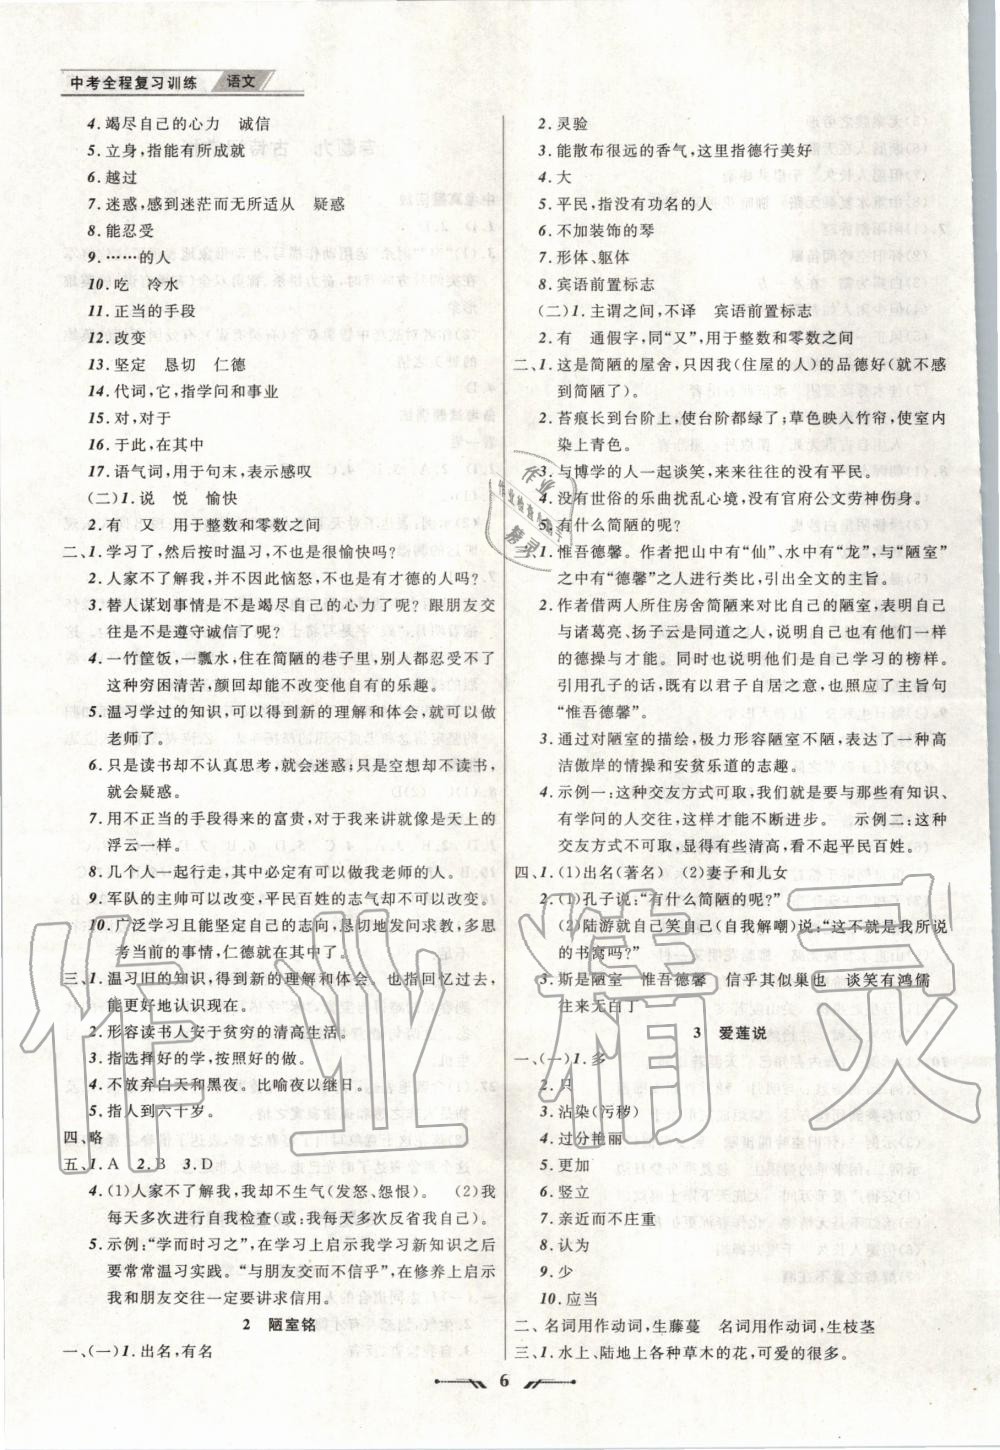 中考全程复习训练 语文
4. 竭尽自己的心力　诚信
5. 立身,指能有所成就
6. 越过
7. 迷惑,感到迷茫而无所适从　疑惑
8. 能忍受
9. ……的人
10. 吃　冷水
11. 正当的手段
12. 改变
13. 坚定　恳切　仁德
14. 代词,它,指学问和事业
15. 对,对于
16. 于此,在其中
17. 语气词,用于句末,表示感叹
(二)1. 说　悦　愉快
2. 有　又　用于整数和零数之间
二、1. 学习了,然后按时温习,不也是很愉快吗?
2. 人家不了解我,并不因此恼怒,不也是有才德的人吗?
3. 替人谋划事情是不是竭尽自己的心力了呢? 跟朋友交
往是不是遵守诚信了呢?
4. 一竹筐饭,一瓢水,住在简陋的巷子里,别人都忍受不了
这种穷困清苦,颜回却能不改变他自有的乐趣。
5. 温习学过的知识,可以得到新的理解和体会,就可以做
老师了。
6. 只是读书却不认真思考,就会迷惑;只是空想却不读书,
就会疑惑。
7. 用不正当的手段得来的富贵,对于我来讲就像是天上的
浮云一样。
8. 几个人一起行走,其中必定有可以做我老师的人。
9. 军队的主帅可以改变,平民百姓的志气却不可以改变。
10. 广泛学习且能坚定自己的志向,恳切地发问求教,多思
考当前的事情,仁德就在其中了。
三、1. 温习旧的知识,得到新的理解和体会。也指回忆过去,
能更好地认识现在。
2. 形容读书人安于贫穷的清高生活。
3. 指选择好的学,按照好的做。
4. 不放弃白天和黑夜。比喻夜以继日。
5. 指人到六十岁。
四、略
五、1. A　2. B　3. D
4. (1)人家不了解我,我却不生气(发怒、怨恨)。 (2)我
每天多次进行自我检查(或:我每天多次反省我自己)。
5. 示例:“学而时习之”,在学习上启示我学习新知识之后
要常常温习实践。“与朋友交而不信乎”,在修养上启示
我和朋友交往一定要讲求信用。
2　陋室铭
一、(一)1. 出名,有名
2. 灵验
3. 能散布很远的香气,这里指德行美好
4. 大
5. 平民,指没有功名的人
6. 不加装饰的琴
7. 形体、躯体
8. 宾语前置标志
(二)1. 主谓之间,不译　宾语前置标志
2. 有　通假字,同“又”,用于整数和零数之间
二、1. 这是简陋的屋舍,只因我(住屋的人)的品德好(就不感
到简陋了)。
2. 苔痕长到台阶上,使台阶都绿了;草色映入竹帘,使室内
染上青色。
3. 与博学的人一起谈笑,来来往往的没有平民。
4. 没有世俗的乐曲扰乱心境,没有官府公文劳神伤身。
5. 有什么简陋的呢?
三、1. 惟吾德馨。作者把山中有“仙”、水中有“龙”,与“陋室”
之中有“德馨”之人进行类比,引出全文的主旨。
2. 作者借两人所住房舍简陋来对比自己的陋室,表明自己
与诸葛亮、扬子云是同道之人,同时表明自己也有他们一样
的德操与才能。同时也说明他们是自己学习的榜样。
引用孔子的话,既有以君子自居之意,也照应了主旨句
“惟吾德馨”。
3. 通过对陋室的描绘,极力形容陋室不陋,表达了一种高
洁傲岸的情操和安贫乐道的志趣。
4. 示例一:这种交友方式可取,我们就是要与那些有知识、
有学问的人交往,这样才能不断进步。　示例二:这种
交友方式不可取,显得有些清高,看不起平民百姓。
四、1. (1)出名(著名)　(2)妻子和儿女
2. (1)孔子说:“有什么简陋的呢?”
(2)陆游就自己笑自己(自我解嘲)说:“这不就是我所说
的书窝吗?”
3. 斯是陋室　惟吾德馨　信乎其似巢也　谈笑有鸿儒
往来无白丁
3　爱莲说
一、(一)1. 多
2. 只
3. 沾染(污秽)
4. 过分艳丽
5. 更加
6. 竖立
7. 亲近而不庄重
8. 认为
9. 少
10. 应当
二、名词用作动词,生藤蔓　名词用作动词,生枝茎
三、1. 水上、陆地上各种草木的花,可爱的很多。
6
作业精灵